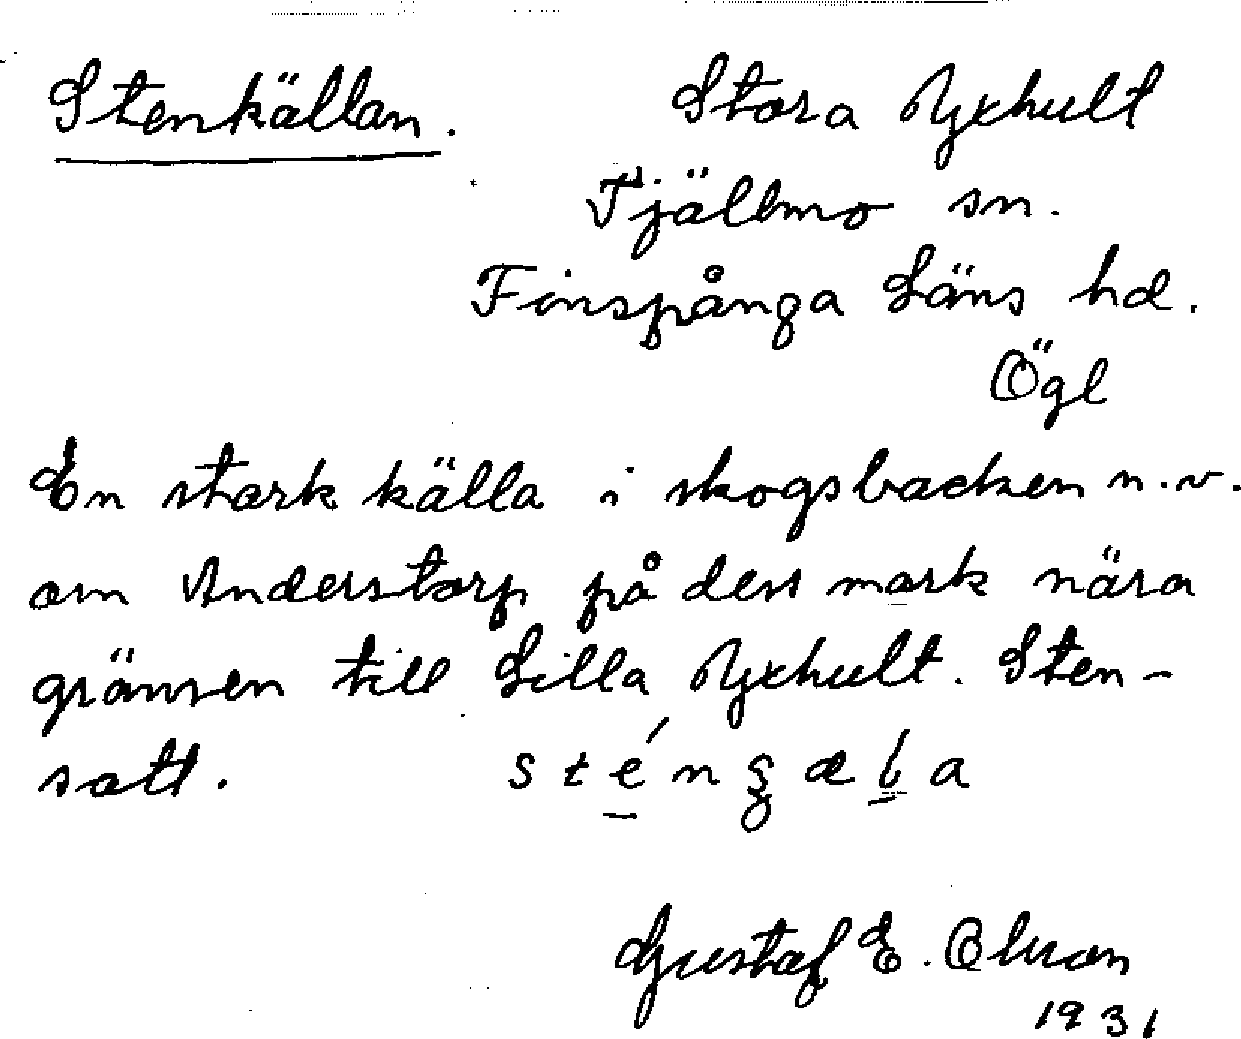 Stenkällan. Stora Yxhult
Tjällmo sn.
Finspånga Läns hd.
Ögl
En stark källa i skogsbacken n.v.
om Anderstorp på dess mark nära
gränsen till Lilla Yxhult. Sten-
satt. sténʂæla
Gustaf E. Olsson
1931